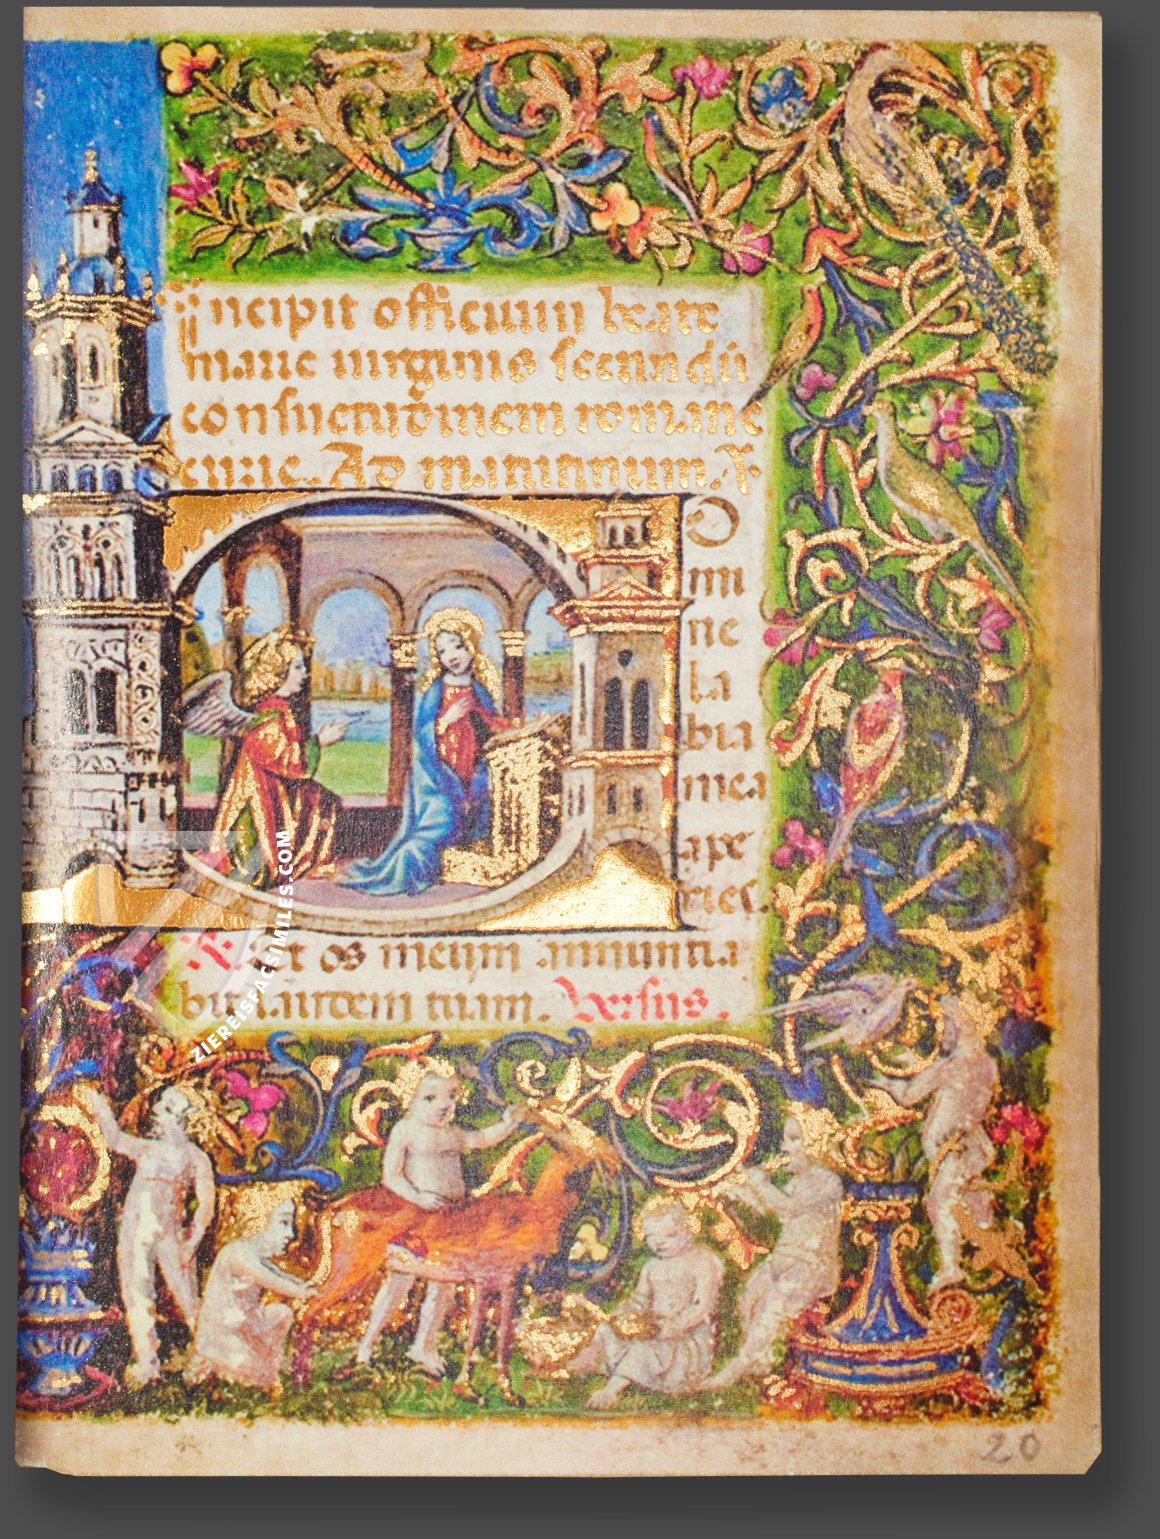 incipit officium beate
marie uirginis secundū
consuetudinem romane
curie. Ad matutinum. V.
D
O
mi
ne
la
bia
mea
ape
ries.
R. Et os meum annuntia
bit laudem tuam. Versus.
20
ZIEREISFACSIMILES.COM